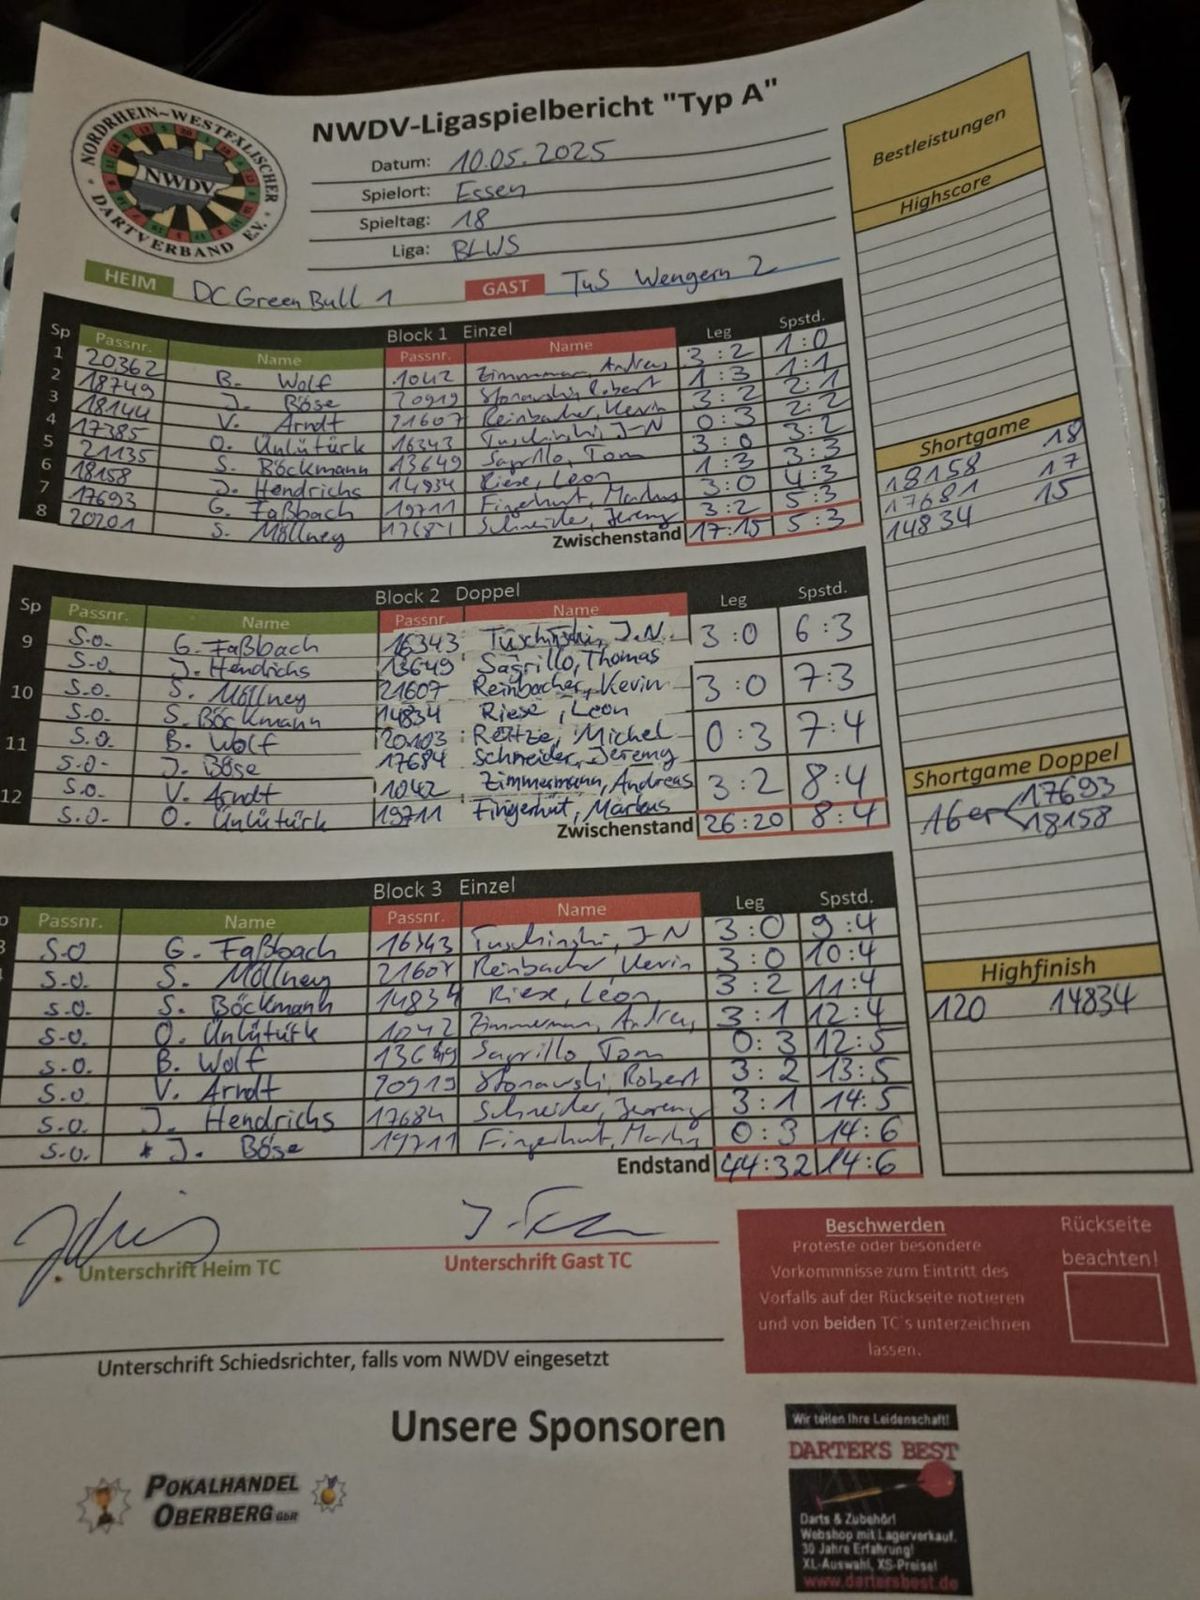 NWDV-Ligaspielbericht "Typ A"
NORDRHEIN~WESTFÄLISCHER DARTVERBAND E.V.
NWDV
Datum: 10.05.2025
Spielort: Essen
Spieltag: 18
Liga: BLWS
HEIM DC Green Bull 1 GAST TuS Wengern 2
Block 1 Einzel
Sp Passnr. Name Passnr. Name Leg Spstd.
1 20362 B. Wolf 1042 Zimmermann, Andreas 3:2 1:0
2 18749 J. Böse 20919 Robert 1:3 1:1
3 18144 V. Arndt 21607 Reinbacher, Kevin 3:2 2:1
4 17385 O. Ünlütürk 16343 Tuschinski, J-N 0:3 2:2
5 21135 S. Böckmann 13649 Sagrillo, Tom 3:0 3:2
6 18158 J. Hendrichs 14834 Riese, Leon 1:3 3:3
7 17693 G. Faßbach 19711 Fingerhut, Markus 3:0 4:3
8 20201 S. Möllney Schneider, Jeremy 3:2 5:3
Zwischenstand 17:15 5:3
Block 2 Doppel
Sp Passnr. Name Passnr. Name Leg Spstd.
9 S.O. G. Faßbach 16343 Tuschinski, J.N. 3:0 6:3
S.O. J. Hendrichs 13649 Sagrillo, Thomas
10 S.O. S. Möllney 21607 Reinbacher, Kevin 3:0 7:3
S.O. S. Böckmann 14834 Riese, Leon
11 S.O. B. Wolf 20103 Michel 0:3 7:4
S.O. J. Böse 17684 Schneider, Jeremy
12 S.O. V. Arndt 1042 Zimmermann, Andreas 3:2 8:4
S.O. O. Ünlütürk 19711 Fingerhut, Markus
Zwischenstand 26:20 8:4
Block 3 Einzel
Passnr. Name Passnr. Name Leg Spstd.
S.O G. Faßbach 16343 Tuschinski, J-N 3:0 9:4
S.O. S. Möllney 21607 Reinbacher, Kevin 3:0 10:4
S.O. S. Böckmann 14834 Riese, Leon 3:2 11:4
S.O. O. Ünlütürk 1042 Zimmermann, Andreas 3:1 12:4
S.O. B. Wolf 13649 Sagrillo Tom 0:3 12:5
S.O V. Arndt 20919 Robert 3:2 13:5
S.O. J. Hendrichs 17684 Schneider, Jeremy 3:1 14:5
S.O. * J. Böse 19711 Fingerhut, Markus 0:3 14:6
Endstand 44:32 14:6
Unterschrift Heim TC
Unterschrift Gast TC
Unterschrift Schiedsrichter, falls vom NWDV eingesetzt
Bestleistungen
Highscore
Shortgame
18158 18
17681 17
14834 15
Shortgame Doppel
16er 17693
18158
Highfinish
120 14834
Beschwerden
Proteste oder besondere
Vorkommnisse zum Eintritt des
Vorfalls auf der Rückseite notieren
und von beiden TC´s unterzeichnen
lassen.
Rückseite
beachten!
Unsere Sponsoren
POKALHANDEL
OBERBERG GbR
Wir teilen Ihre Leidenschaft!
DARTER'S BEST
Darts & Zubehör!
Webshop mit Lagerverkauf.
30 Jahre Erfahrung!
XL-Auswahl, XS-Preise!
www.dartersbest.de